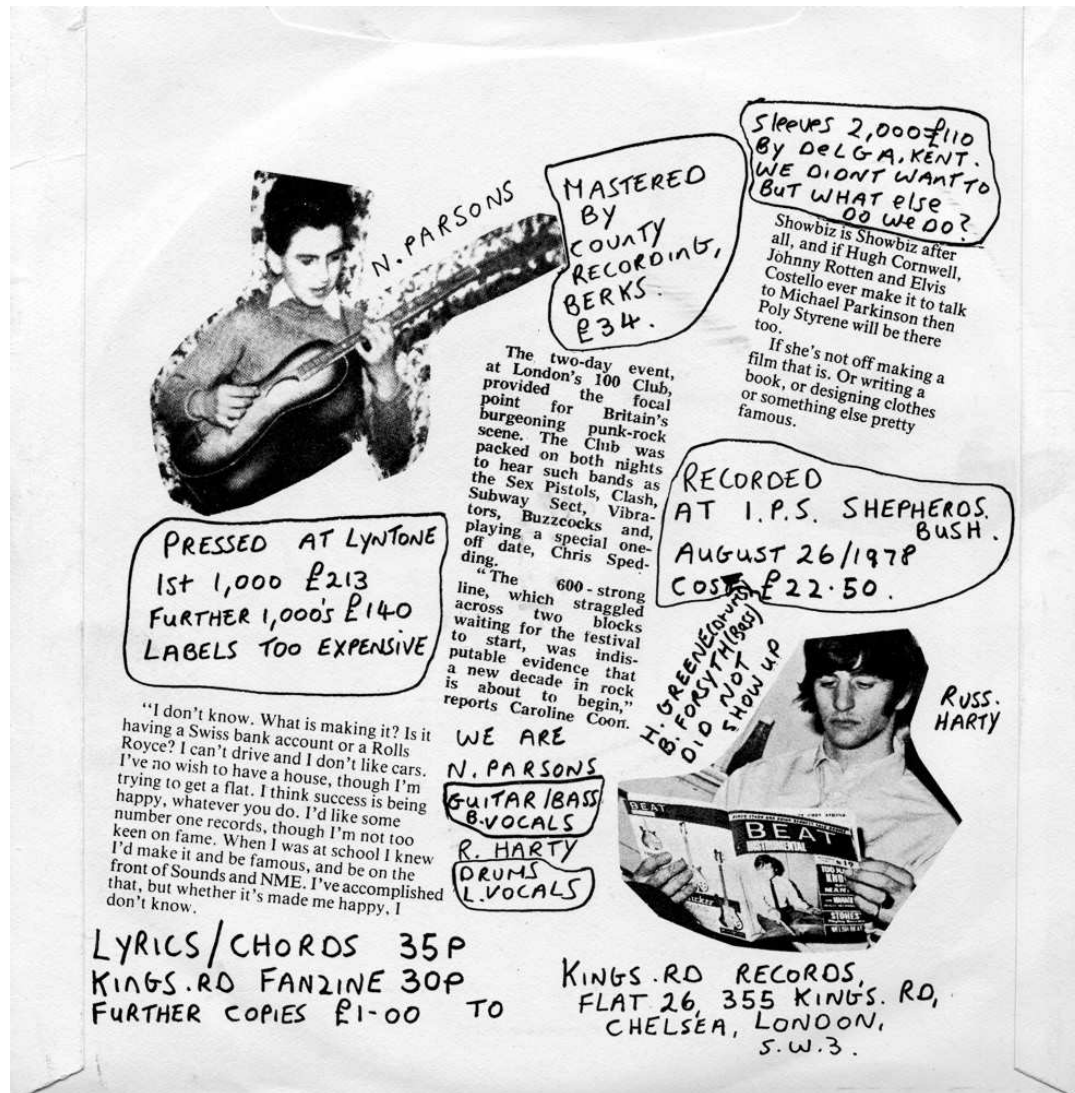 sleeves 2,000 £110
BY DELGA, KENT.
WE DIDNT WANT TO
BUT WHAT else
DO WE DO?
N. PARSONS
MASTERED
BY
COUNTY
RECORDING,
BERKS.
£34.
Showbiz is Showbiz after
all, and if Hugh Cornwell,
Johnny Rotten and Elvis
Costello ever make it to talk
to Michael Parkinson then
Poly Styrene will be there
too.
If she's not off making a
film that is. Or writing a
book, or designing clothes
or something else pretty
famous.
The two-day event,
at London's 100 Club,
provided the focal
point for Britain's
burgeoning punk-rock
scene. The Club was
packed on both nights
to hear such bands as
the Sex Pistols, Clash,
Subway Sect, Vibra-
tors, Buzzcocks and,
playing a special one-
off date, Chris Sped-
ding.
"The 600-strong
line, which straggled
across two blocks
waiting for the festival
to start, was indis-
putable evidence that
a new decade in rock
is about to begin,"
reports Caroline Coon.
RECORDED
AT I.P.S. SHEPHERDS.
BUSH.
AUGUST 26/1978
COST £22.50.
PRESSED AT LYNTONE
1st 1,000 £213
FURTHER 1,000's £140
LABELS TOO EXPENSIVE
H. GREENE (Drums)
B. FORSYTH (Bass)
DID NOT
SHOW UP
RUSS.
HARTY
"I don't know. What is making it? Is it
having a Swiss bank account or a Rolls
Royce? I can't drive and I don't like cars.
I've no wish to have a house, though I'm
trying to get a flat. I think success is being
happy, whatever you do. I'd like some
number one records, though I'm not too
keen on fame. When I was at school I knew
I'd make it and be famous, and be on the
front of Sounds and NME. I've accomplished
that, but whether it's made me happy, I
don't know.
WE ARE
N. PARSONS
GUITAR/BASS
B.VOCALS
R. HARTY
DRUMS
L.VOCALS
BEAT
BEAT
INSTRUMENTAL
STONES'
LYRICS/CHORDS 35P
KINGS.RD FANZINE 30P
FURTHER COPIES £1-00 TO
KINGS.RD RECORDS,
FLAT 26, 355 KINGS. RD,
CHELSEA, LONDON,
S.W.3.